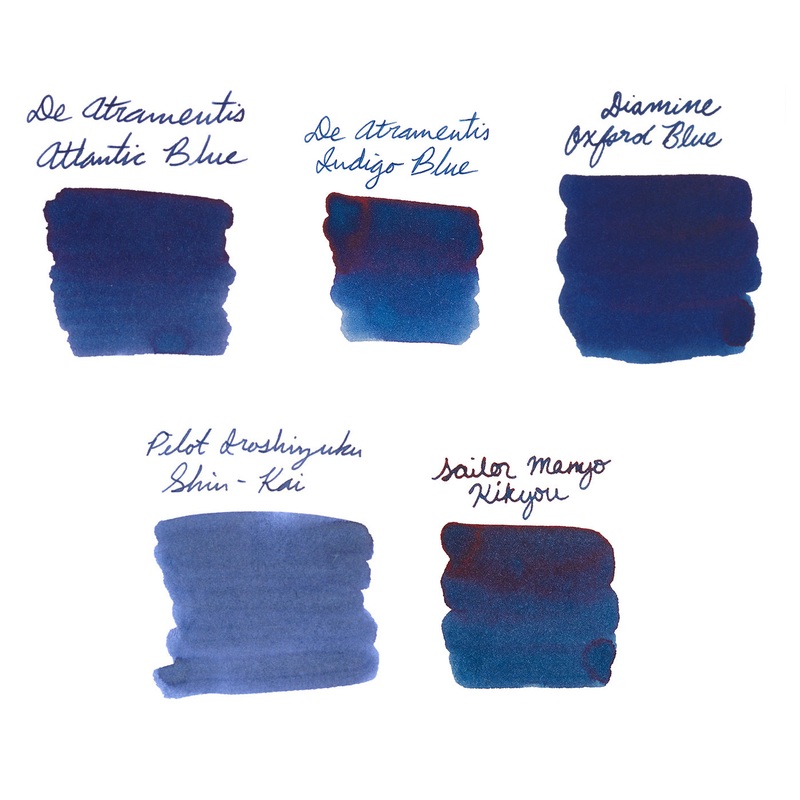 De Atramentis
Atlantic Blue
De Atramentis
Indigo Blue
Diamine
Oxford Blue
Pilot Iroshizuku
Shin-Kai
Sailor Manyo
Kikyou